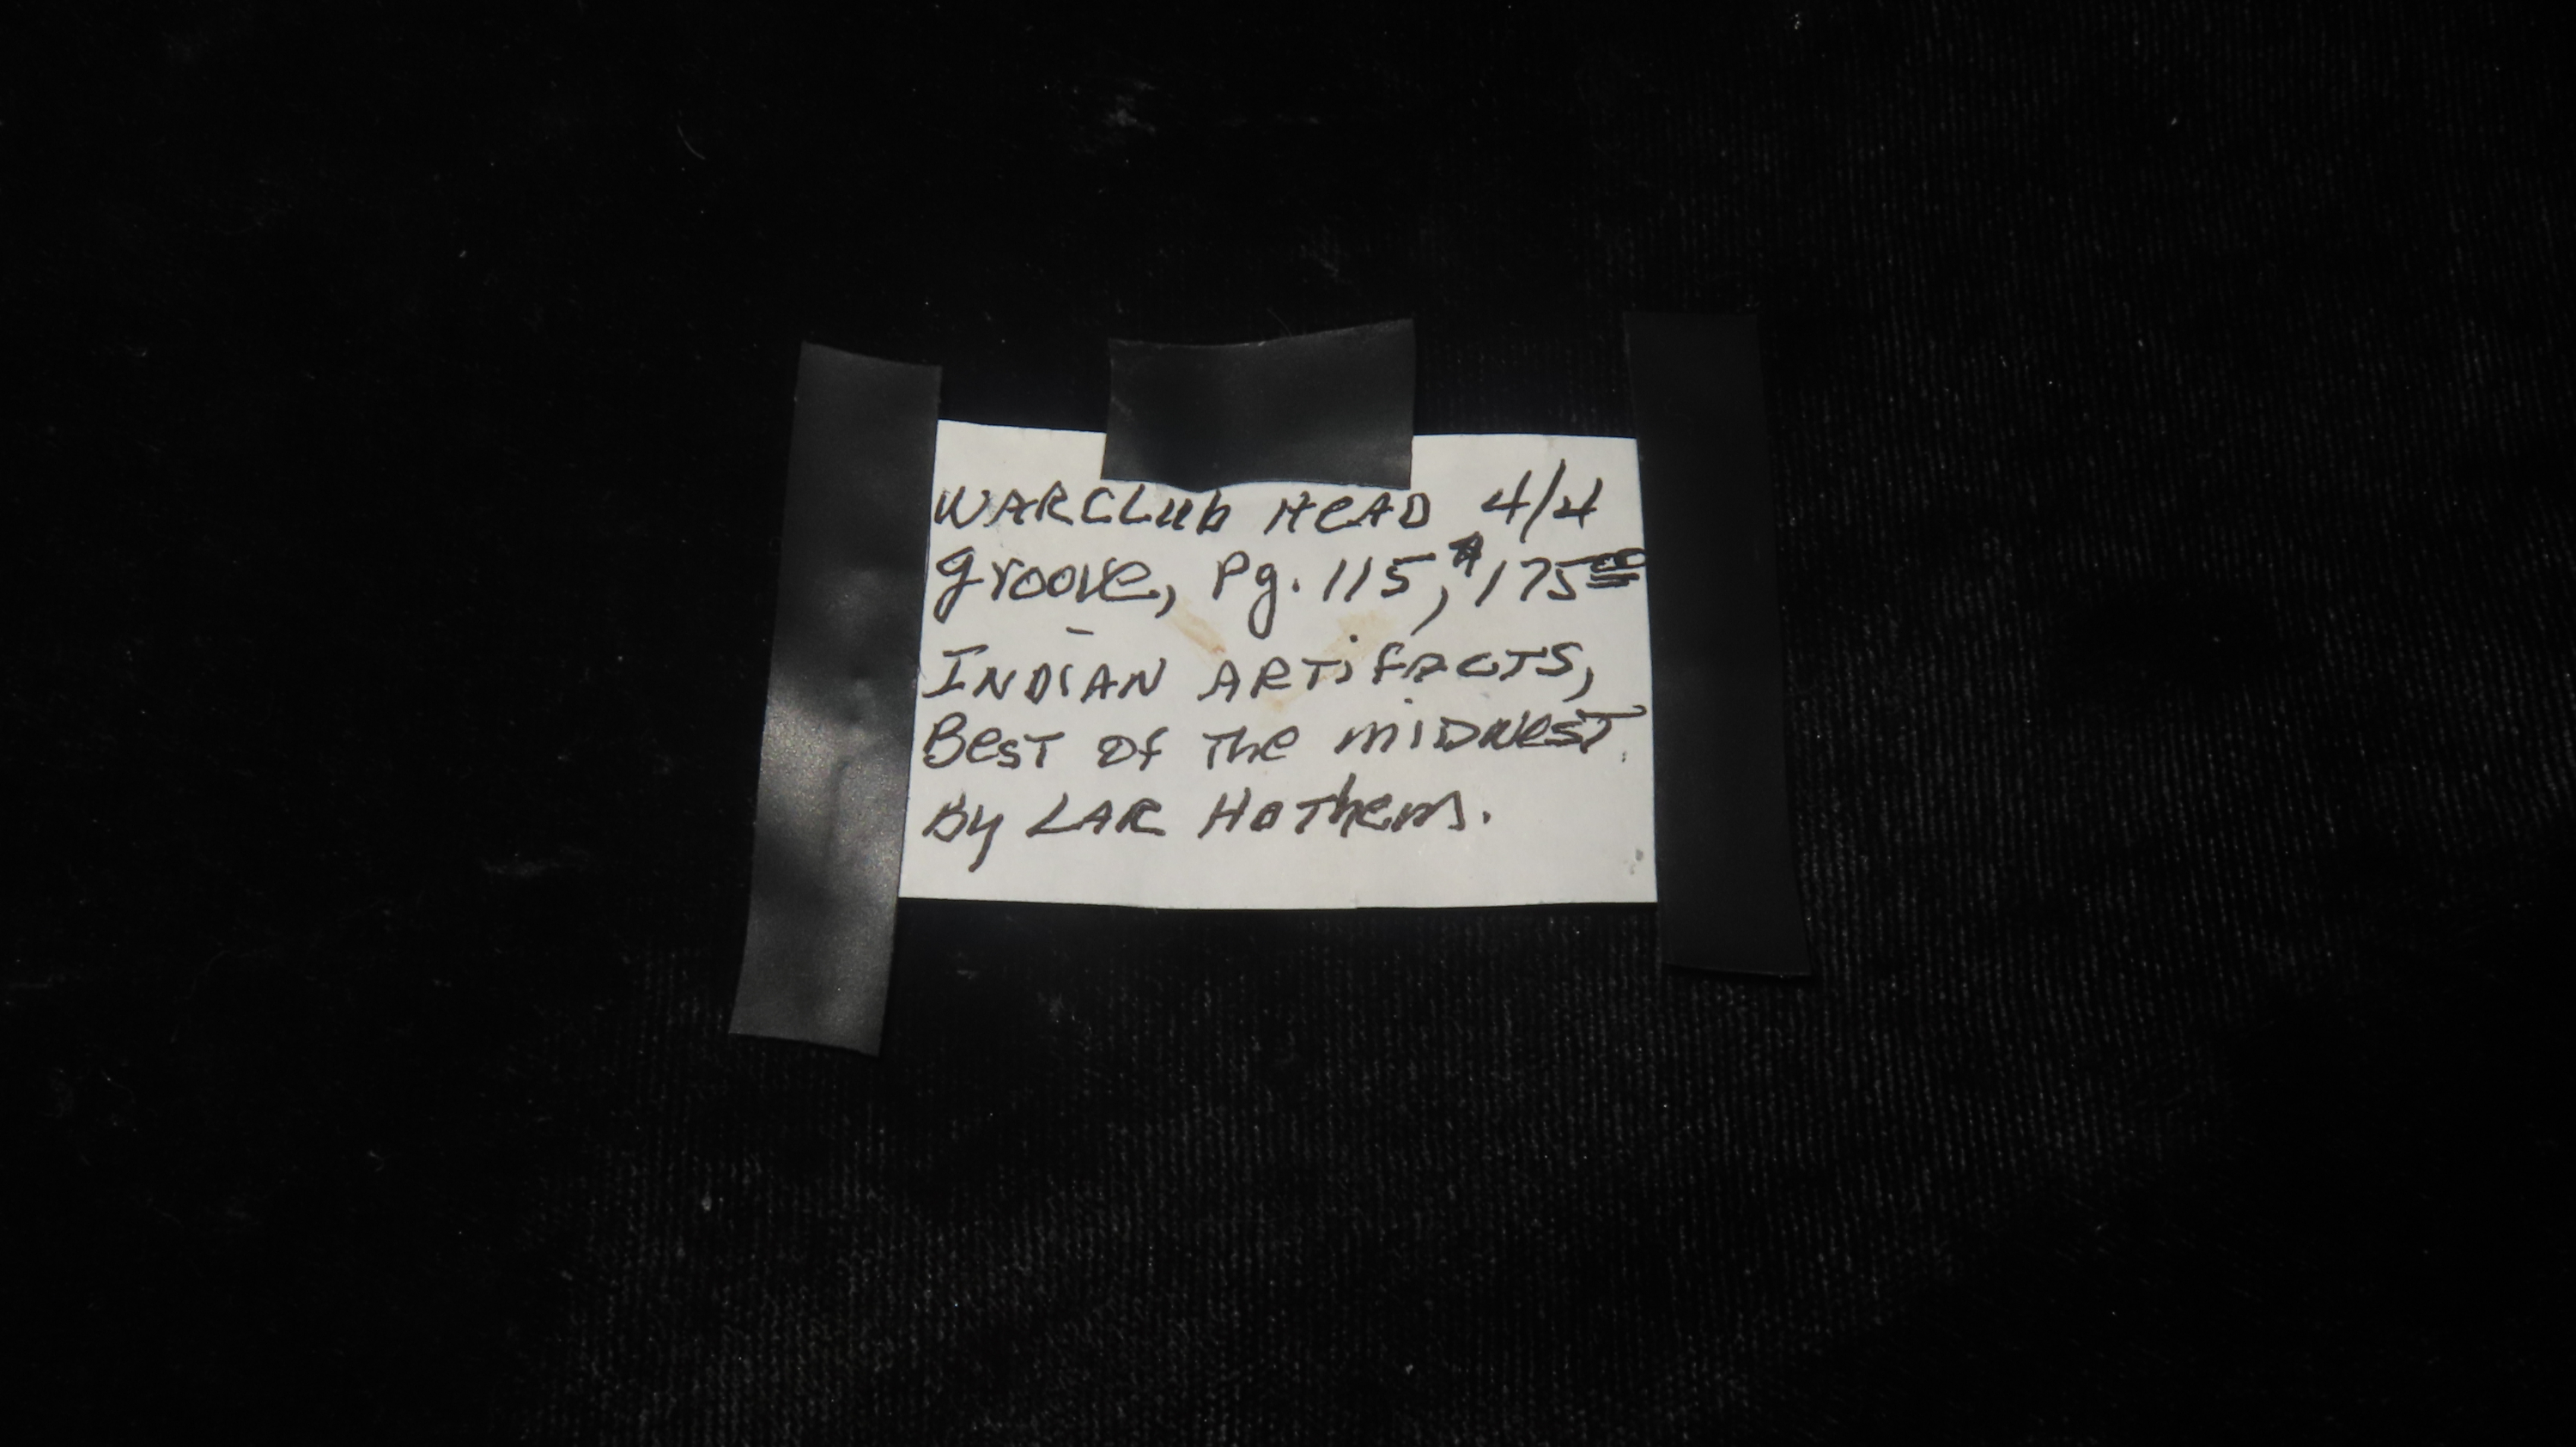 WARCLub HeAD 4/4
groove, Pg. 115, $175.00
INDIAN ARTifACTS,
BesT Of The miDWesT.
By LAR HoThem.